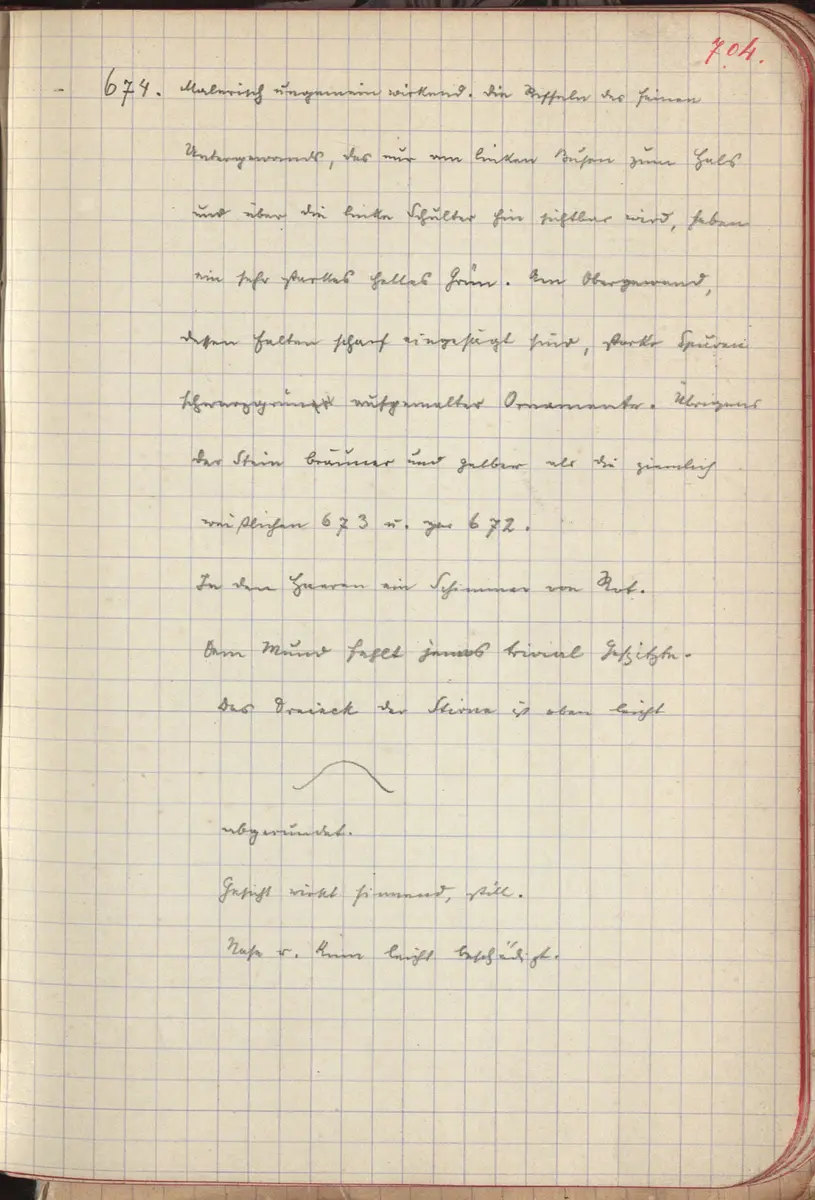 704.
674. Malerisch ungemein wirkend. Die Riffeln des feinen
Untergewands, das nur am linken Busen zum Hals
und über die linke Schulter hin sichtbar wird, haben
ein sehr starkes helles Grün. Am Obergewand,
dessen Falten scharf eingesägt sind, starke Spuren
schwarzgrün aufgemalter Ornamente. Übrigens
der Stein bräuner und gelber als die ziemlich
weißlichen 673 u. gar 672.
In den Haaren ein Schimmer von Rot.
Dem Mund fehlt jenes trivial Geschlitzte.
Das Dreieck der Stirne ist oben leicht
abgerundet.
Gesicht wirkt sinnend, still.
Nase u. Kinn leicht beschädigt.